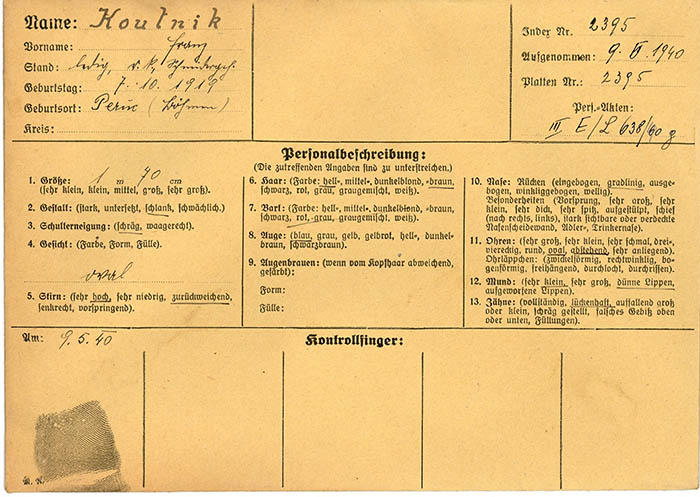 Name: Koutnik
Vorname: Franz
Stand: ledig, r. k., Schneidergeh.
Geburtstag: 7. 10. 1919
Geburtsort: Peruc (Böhmen)
Kreis:
Index Nr. 2395
Aufgenommen: 9. V. 1940
Platten Nr.: 2395
Pers.-Akten:
III E/L 638/40 g
Personalbeschreibung:
(Die zutreffenden Angaben sind zu unterstreichen.)
1. Größe: 1 m 70 cm
(sehr klein, klein, mittel, groß, sehr groß).
2. Gestalt: (stark, untersetzt, schlank, schwächlich).
3. Schulterneigung: (schräg, waagerecht).
4. Gesicht: (Farbe, Form, Fülle).
oval
5. Stirn: (sehr hoch, sehr niedrig, zurückweichend,
senkrecht, vorspringend).
6. Haar: (Farbe: hell-, mittel-, dunkelblond, -braun,
schwarz, rot, grau, graugemischt, weiß).
7. Bart: (Farbe: hell-, mittel-, dunkelblond, -braun,
schwarz, rot, grau, graugemischt, weiß).
8. Auge: (blau, grau, gelb, gelbrot, hell-, dunkel-
braun, schwarzbraun).
9. Augenbrauen: (wenn vom Kopfhaar abweichend,
gefärbt):
Form:
Fülle:
10. Nase: Rücken (eingebogen, gradlinig, ausge-
bogen, winkliggebogen, wellig).
Besonderheiten (Vorsprung, sehr groß, sehr
klein, sehr dick, sehr spitz, aufgestülpt, schief
(nach rechts, links), stark sichtbare oder verdeckte
Nasenscheidewand, Adler-, Trinkernase).
11. Ohren: (sehr groß, sehr klein, sehr schmal, drei-,
viereckig, rund, oval, abstehend, sehr anliegend).
Ohrläppchen: (zwickelförmig, rechtwinklig, bo-
genförmig, freihängend, durchlocht, durchrissen).
12. Mund: (sehr klein, sehr groß, dünne Lippen,
aufgeworfene Lippen).
13. Zähne: (vollständig, lückenhaft, auffallend groß
oder klein, schräg gestellt, falsches Gebiß oben
oder unten, Füllungen).
Am: 9. 5. 40
Kontrollfinger: